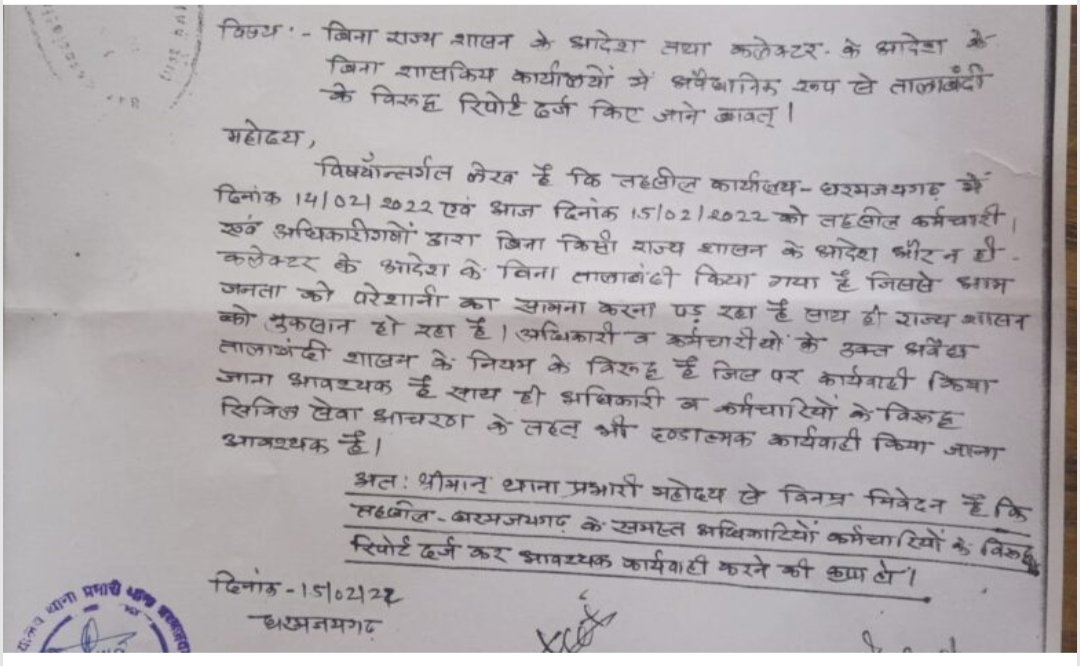 विषय :- बिना राज्य शासन के आदेश तथा कलेक्टर के आदेश के
बिना शासकिय कार्यालयों में अवैधानिक रूप से तालाबंदी
के विरूद्ध रिपोर्ट दर्ज किए जाने बावत् ।
महोदय,
विषयाँन्तर्गत लेख है कि तहसील कार्यालय-धरमजयगढ़ में
दिनांक 14/02/2022 एवं आज दिनांक 15/02/2022 को तहसील कर्मचारी
एवं अधिकारीगणों द्वारा बिना किसी राज्य शासन के आदेश और न ही
कलेक्टर के आदेश के बिना तालाबंदी किया गया है जिससे आम
जनता को परेशानी का सामना करना पड़ रहा है साथ ही राज्य शासन
को नुकसान हो रहा है । अधिकारी व कर्मचारीयों के उक्त अवैध
तालाबंदी शासन के नियम के विरूद्ध है जिस पर कार्यवाही किया
जाना आवश्यक है साथ ही अधिकारी व कर्मचारियों के विरूद्ध
सिविल सेवा आचरण के तहत् भी दण्डात्मक कार्यवाही किया जाना
आवश्यक है ।
अतः श्रीमान् थाना प्रभारी महोदय से विनम्र निवेदन है कि
तहसील-धरमजयगढ़ के समस्त अधिकारियों कर्मचारियों के विरूद्ध
रिपोर्ट दर्ज कर आवश्यक कार्यवाही करने की कृपा हो ।
दिनांक - 15/02/22
धरमजयगढ़
थाना प्रभारी